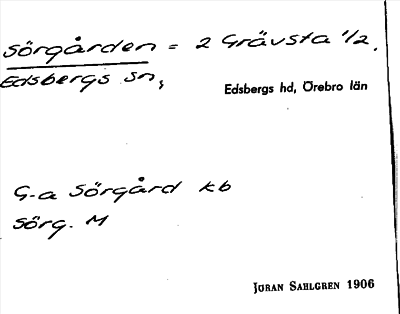 Sörgården = 2 Grävsta 1/2.
Edsbergs sn,
Edsbergs hd, Örebro län
G-a Sörgård kb
Sörg. M
JÖRAN SAHLGREN 1906